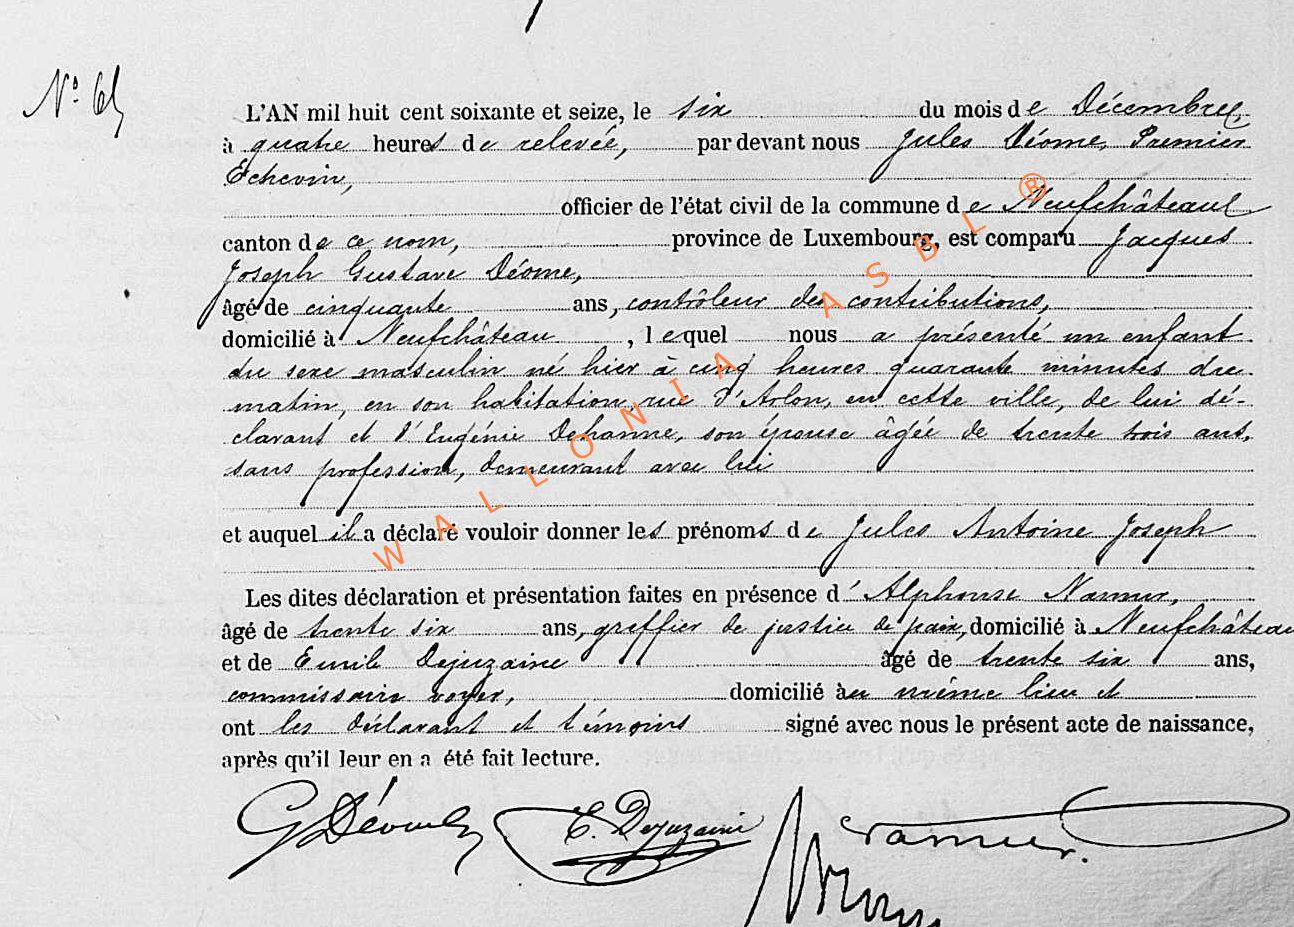 N° 61
L'AN mil huit cent soixante et seize, le six du mois de Décembre,
à quatre heures de relevée, par devant nous Jules Déome, Premier
Echevin,
officier de l'état civil de la commune de Neufchâteau
canton de ce nom, province de Luxembourg, est comparu Jacques
Joseph Gustave Déome,
âgé de cinquante ans, contrôleur des contributions,
domicilié à Neufchâteau, lequel nous a présenté un enfant
du sexe masculin né hier à cinq heures quarante minutes du
matin, en son habitation, rue d'Arlon, en cette ville, de lui dé-
clarant et d'Eugénie Dehanne, son épouse âgée de trente trois ans,
sans profession, demeurant avec lui
et auquel il a déclaré vouloir donner les prénoms de Jules Antoine Joseph
Les dites déclaration et présentation faites en présence d'Alphonse Namur,
âgé de trente six ans, greffier de justice de paix, domicilié à Neufchâteau
et de Emile Dejuzaine âgé de trente six ans,
commissaire voyer, domicilié au même lieu et
ont les déclarant et témoins signé avec nous le présent acte de naissance,
après qu'il leur en a été fait lecture.
G Déome E. Dejuzaine Namur.
WALLONIA ASBL ®